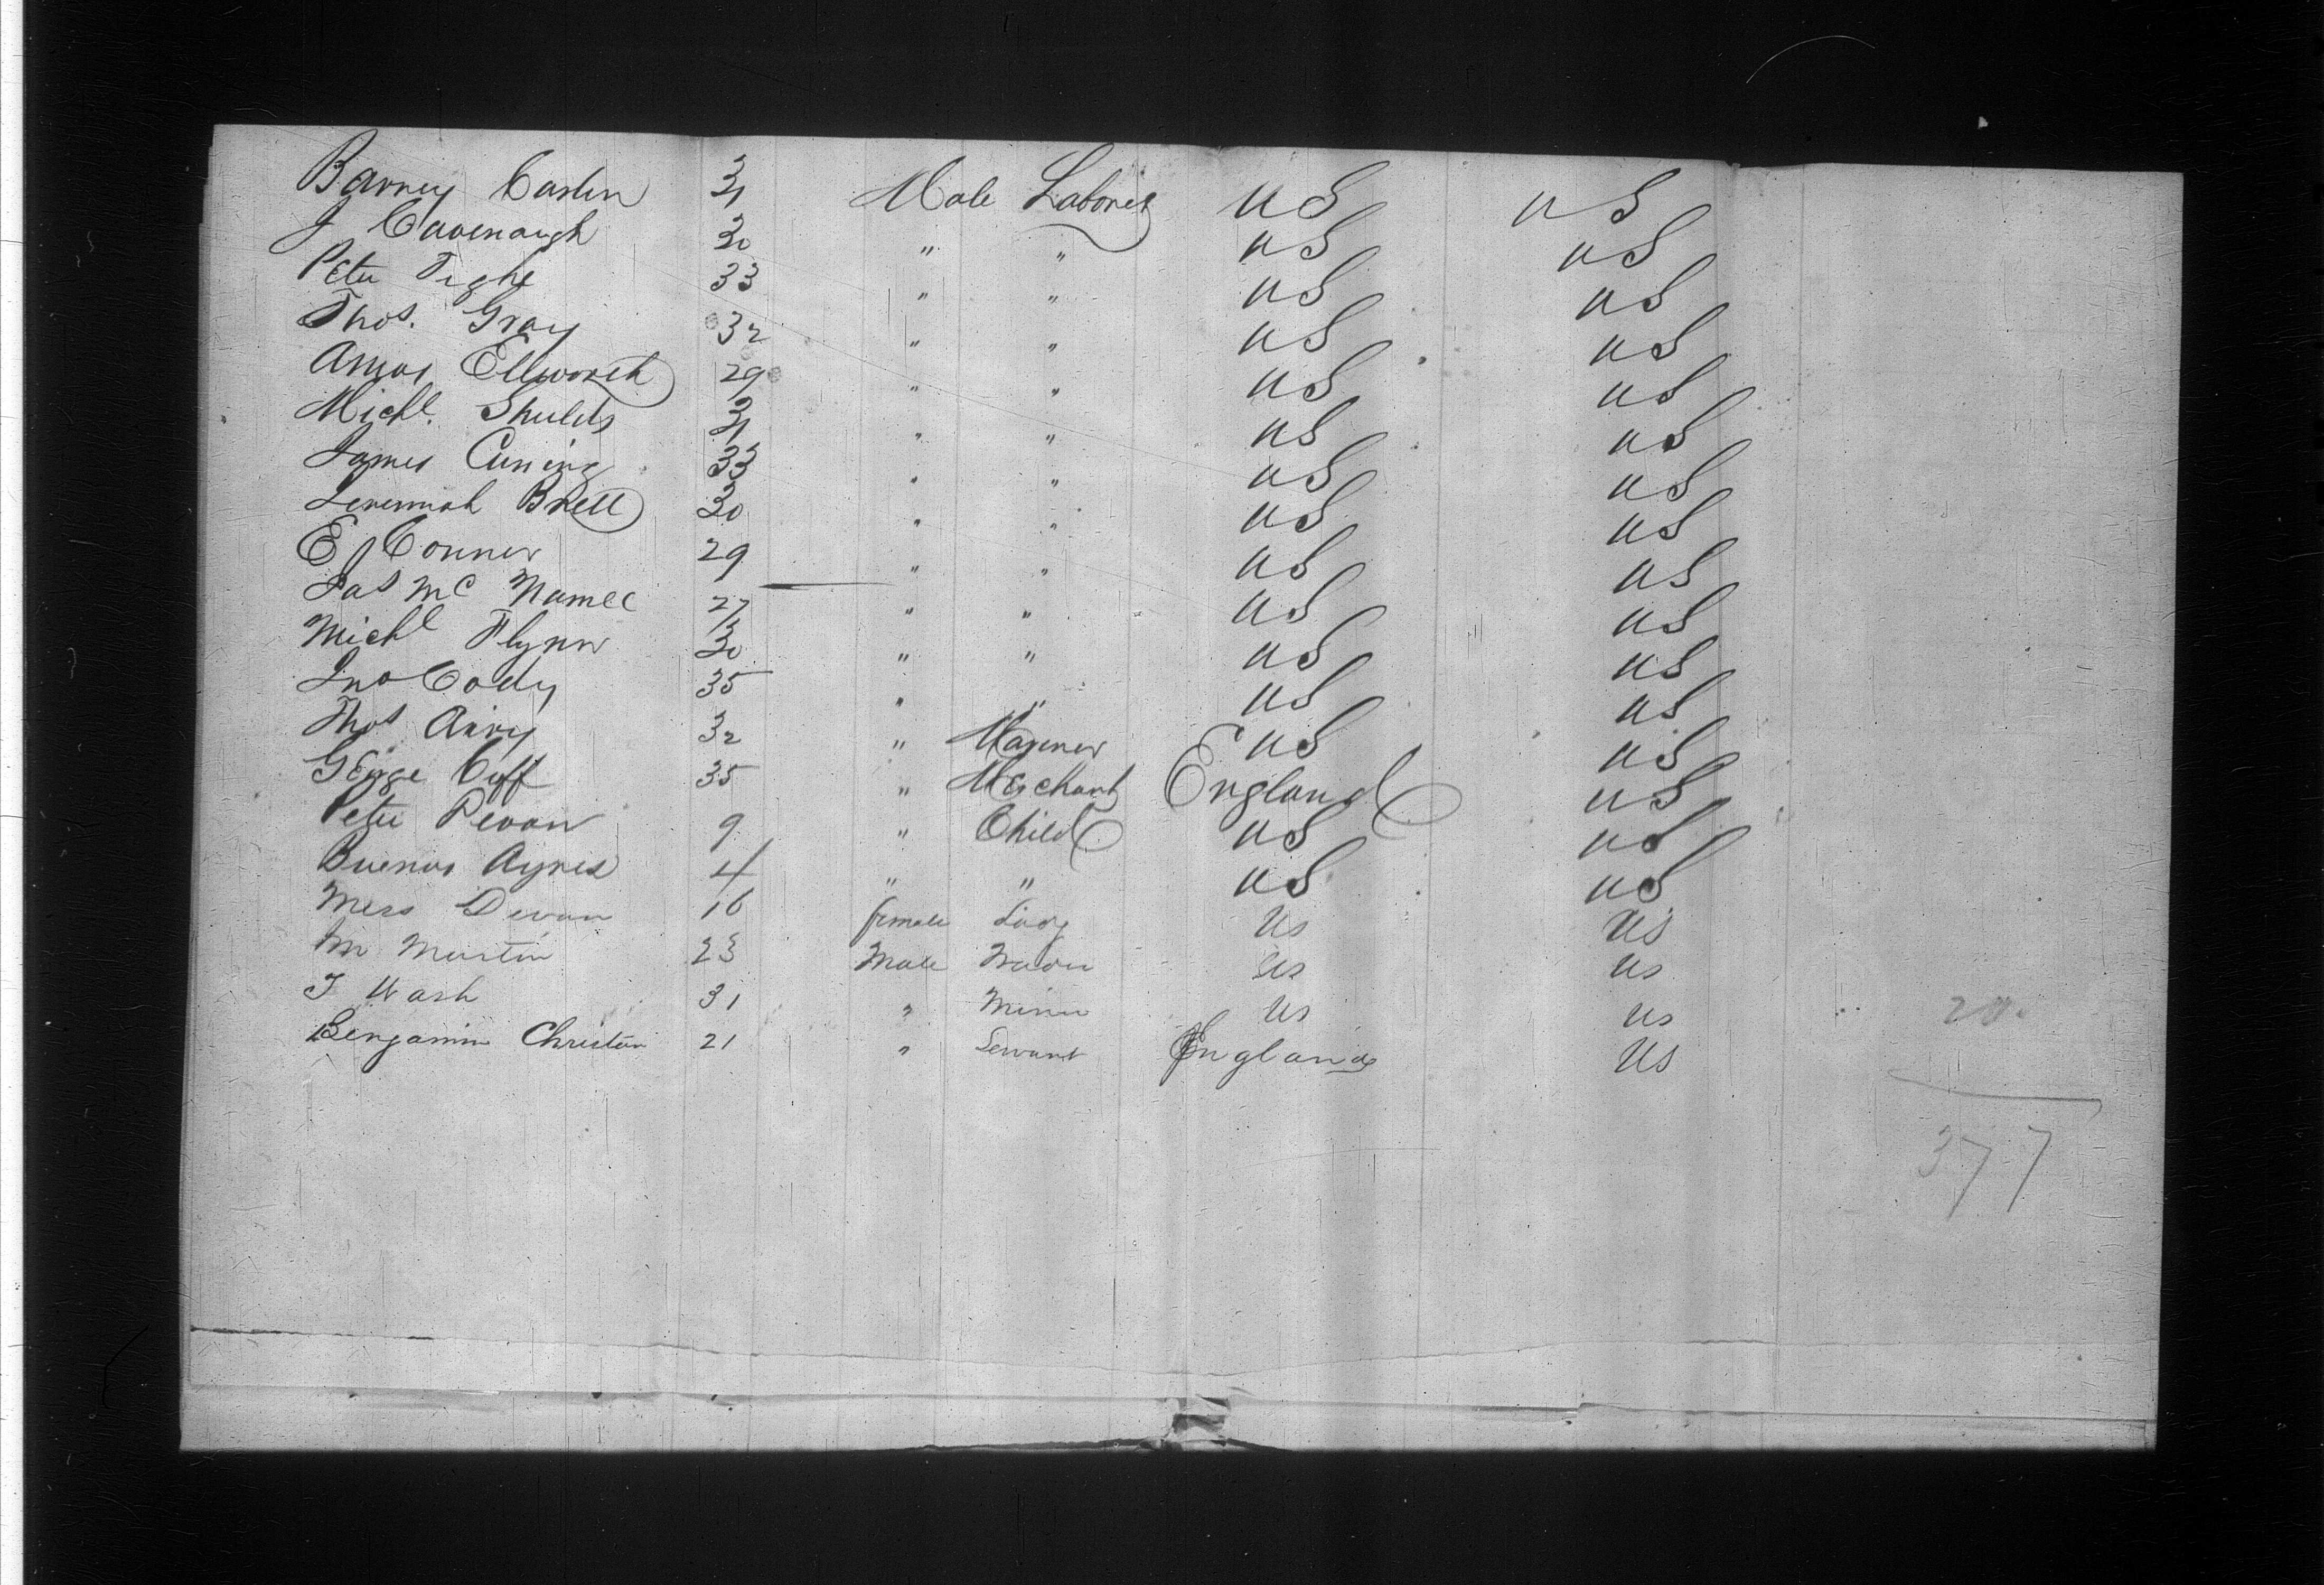 Barney Carlin 31 Male Laborer US US
J Cavenaugh 30 " " US US
Peter Tighe 33 " " US US
Thos. Gray 32 " " US US
Amos Ellworth 29 " " US US
Michl. Shields 31 " " US US
James Cuning 33 " " US US
Jeremiah Brell 30 " " US US
E Conner 29 " " US US
Jas Mc Namee 27 " " US US
Michl Flynn 30 " " US US
Jno Cody 35 " " US US
Thos Airy 32 " US US
George Cuff 35 " Merchant England US
Peter 9 " Child US US
Buenos Ayres 4 " " US US
Miss Devan 16 female Lady US US
M Martin 23 Male US US
J Wash 31 " Miner US US
Benjamin Christian 21 " Servant England US
20.
377